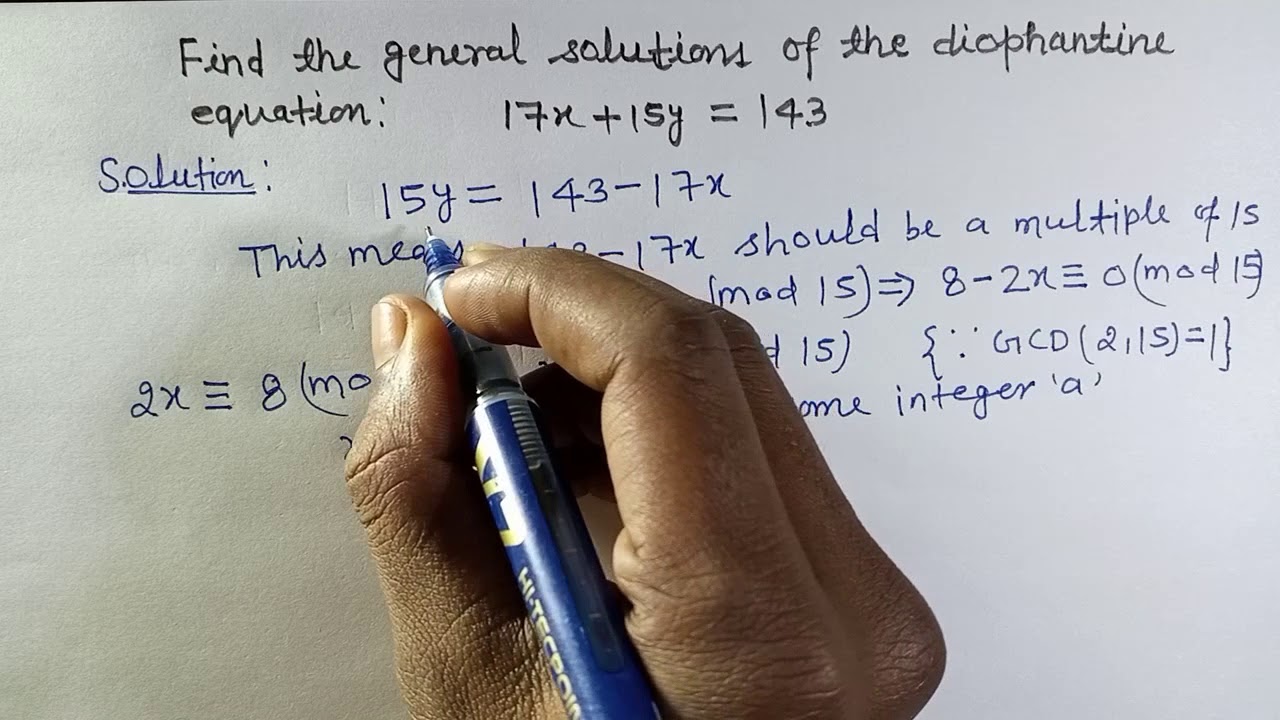 Find the general solutions of the diophantine
equation: 17x + 15y = 143
Solution:
15y = 143 - 17x
This means - 17x should be a multiple of 15
(mod 15) ⇒ 8 - 2x ≡ 0 (mod 15)
15) {∵ GCD(2,15)=1}
2x ≡ 8 (mo
ome integer 'a'
HI-TECPOIN